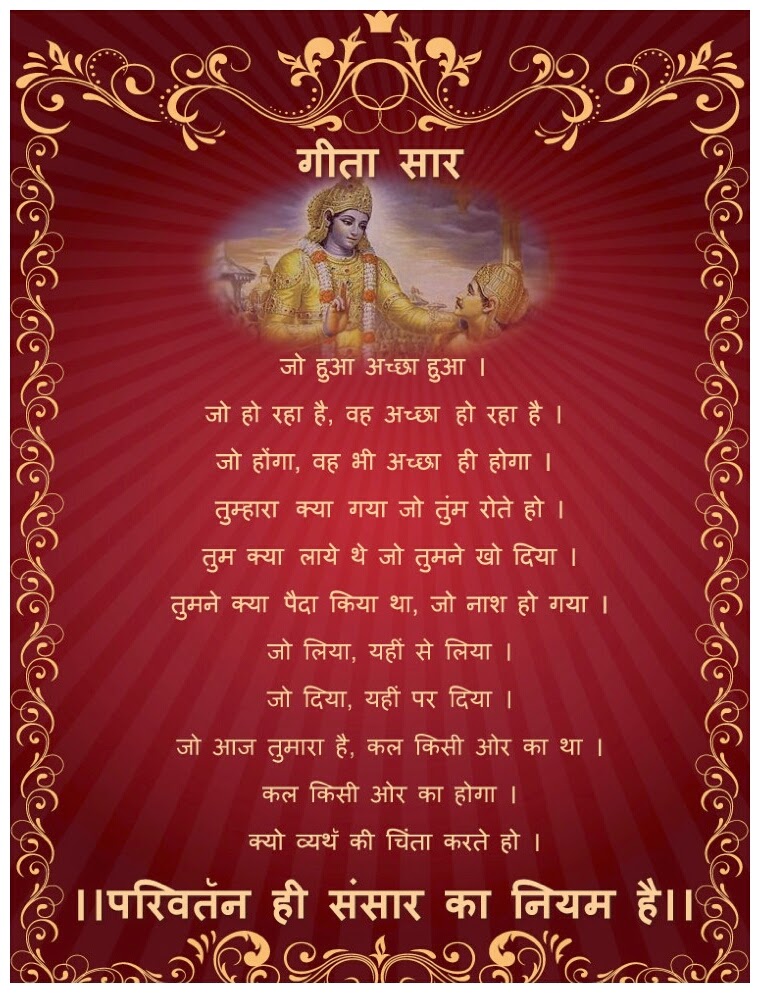 गीता सार
जो हुआ अच्छा हुआ ।
जो हो रहा है, वह अच्छा हो रहा है ।
जो होंगा, वह भी अच्छा ही होगा ।
तुम्हारा क्या गया जो तुंम रोते हो ।
तुम क्या लाये थे जो तुमने खो दिया ।
तुमने क्या पैदा किया था, जो नाश हो गया ।
जो लिया, यहीं से लिया ।
जो दिया, यहीं पर दिया ।
जो आज तुमारा है, कल किसी ओर का था ।
कल किसी ओर का होगा ।
क्यो व्यथॅ की चिंता करते हो ।
||परिवतॅन ही संसार का नियम है||